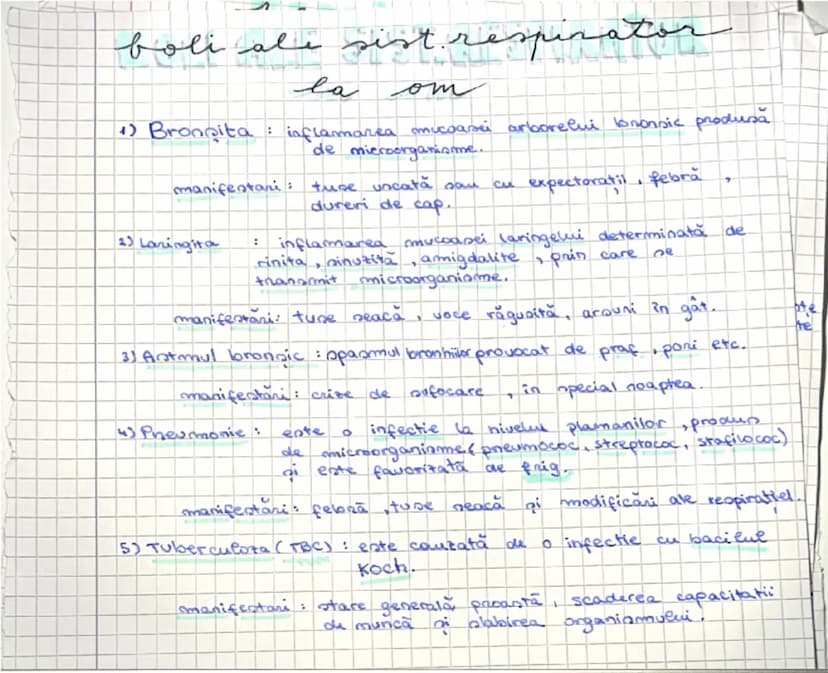 boli ale sist. respirator
la om
1) Bronșita : inflamarea mucoasei arborelui bronșic produsă
de microorganisme.
manifestari : tuse uscată sau cu expectorații, febră,
dureri de cap.
2) Laringita : inflamarea mucoasei laringelui determinată de
rinita, sinuzită, amigdalite, prin care se
transmit microorganisme.
manifestări: tuse seacă, voce răgușită, arsuri în gât.
3) Astmul bronșic : spasmul bronhiilor provocat de praf, pori etc.
manifestări : crize de sufocare, în special noaptea.
4) Pneumonie : este o infectie la nivelul plamanilor, produs
de microorganisme (pneumococ, streptococ, stafilococ)
și este favorizată de frig.
manifestări : febră, tuse seacă și modificări ale respirației.
5) Tuberculoza (TBC) : este cauzată de o infectie cu bacilul
Koch.
manifestari : stare generală proastă, scaderea capacitatii
de muncă și slabirea organismului.